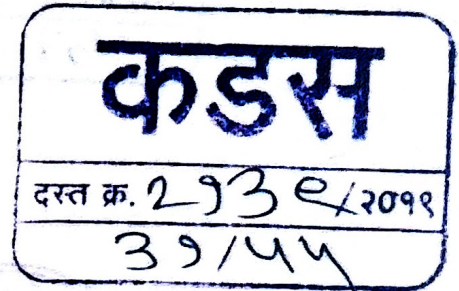 कडस
दस्त क्र. २१३९/२०१९
३१/५५